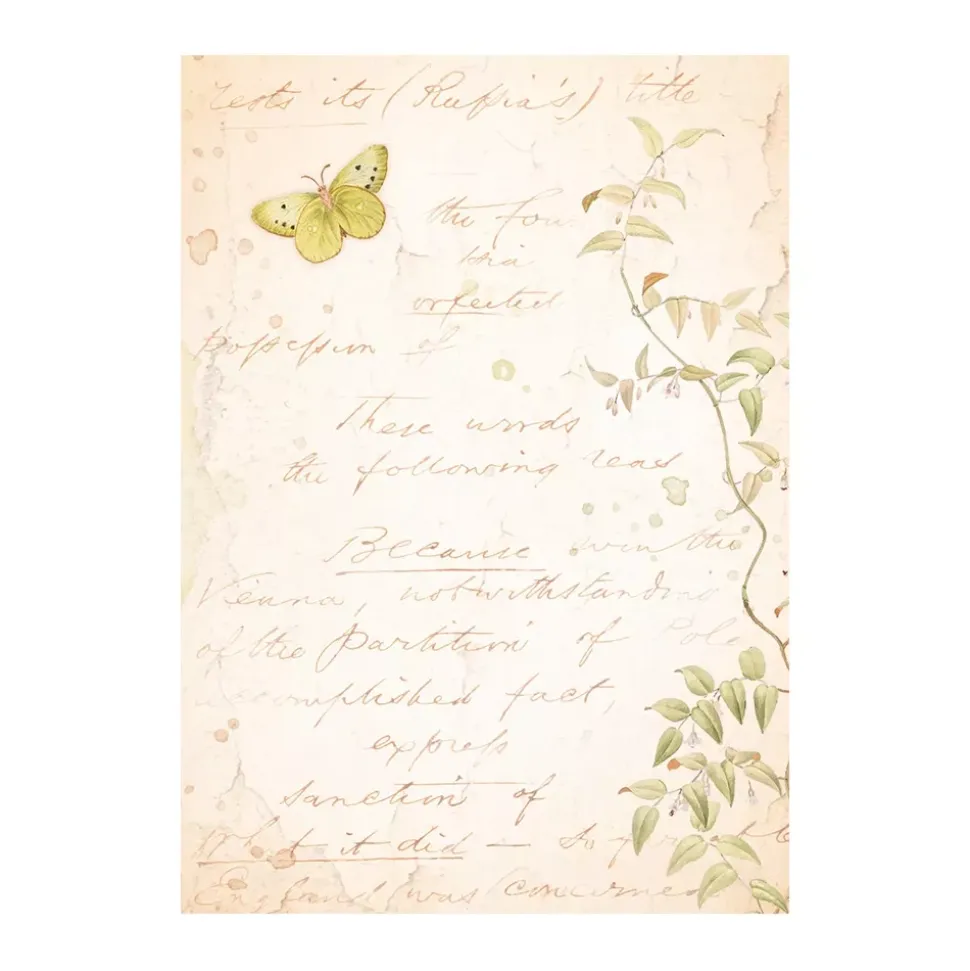 rests its (Russia's) title
the fou
orfected
possession of
These words
the following reas
Because even the
Vienna, notwithstanding
of the Partition of Pole
accomplished fact,
express
sanction of
What it did — so far
England was concerned